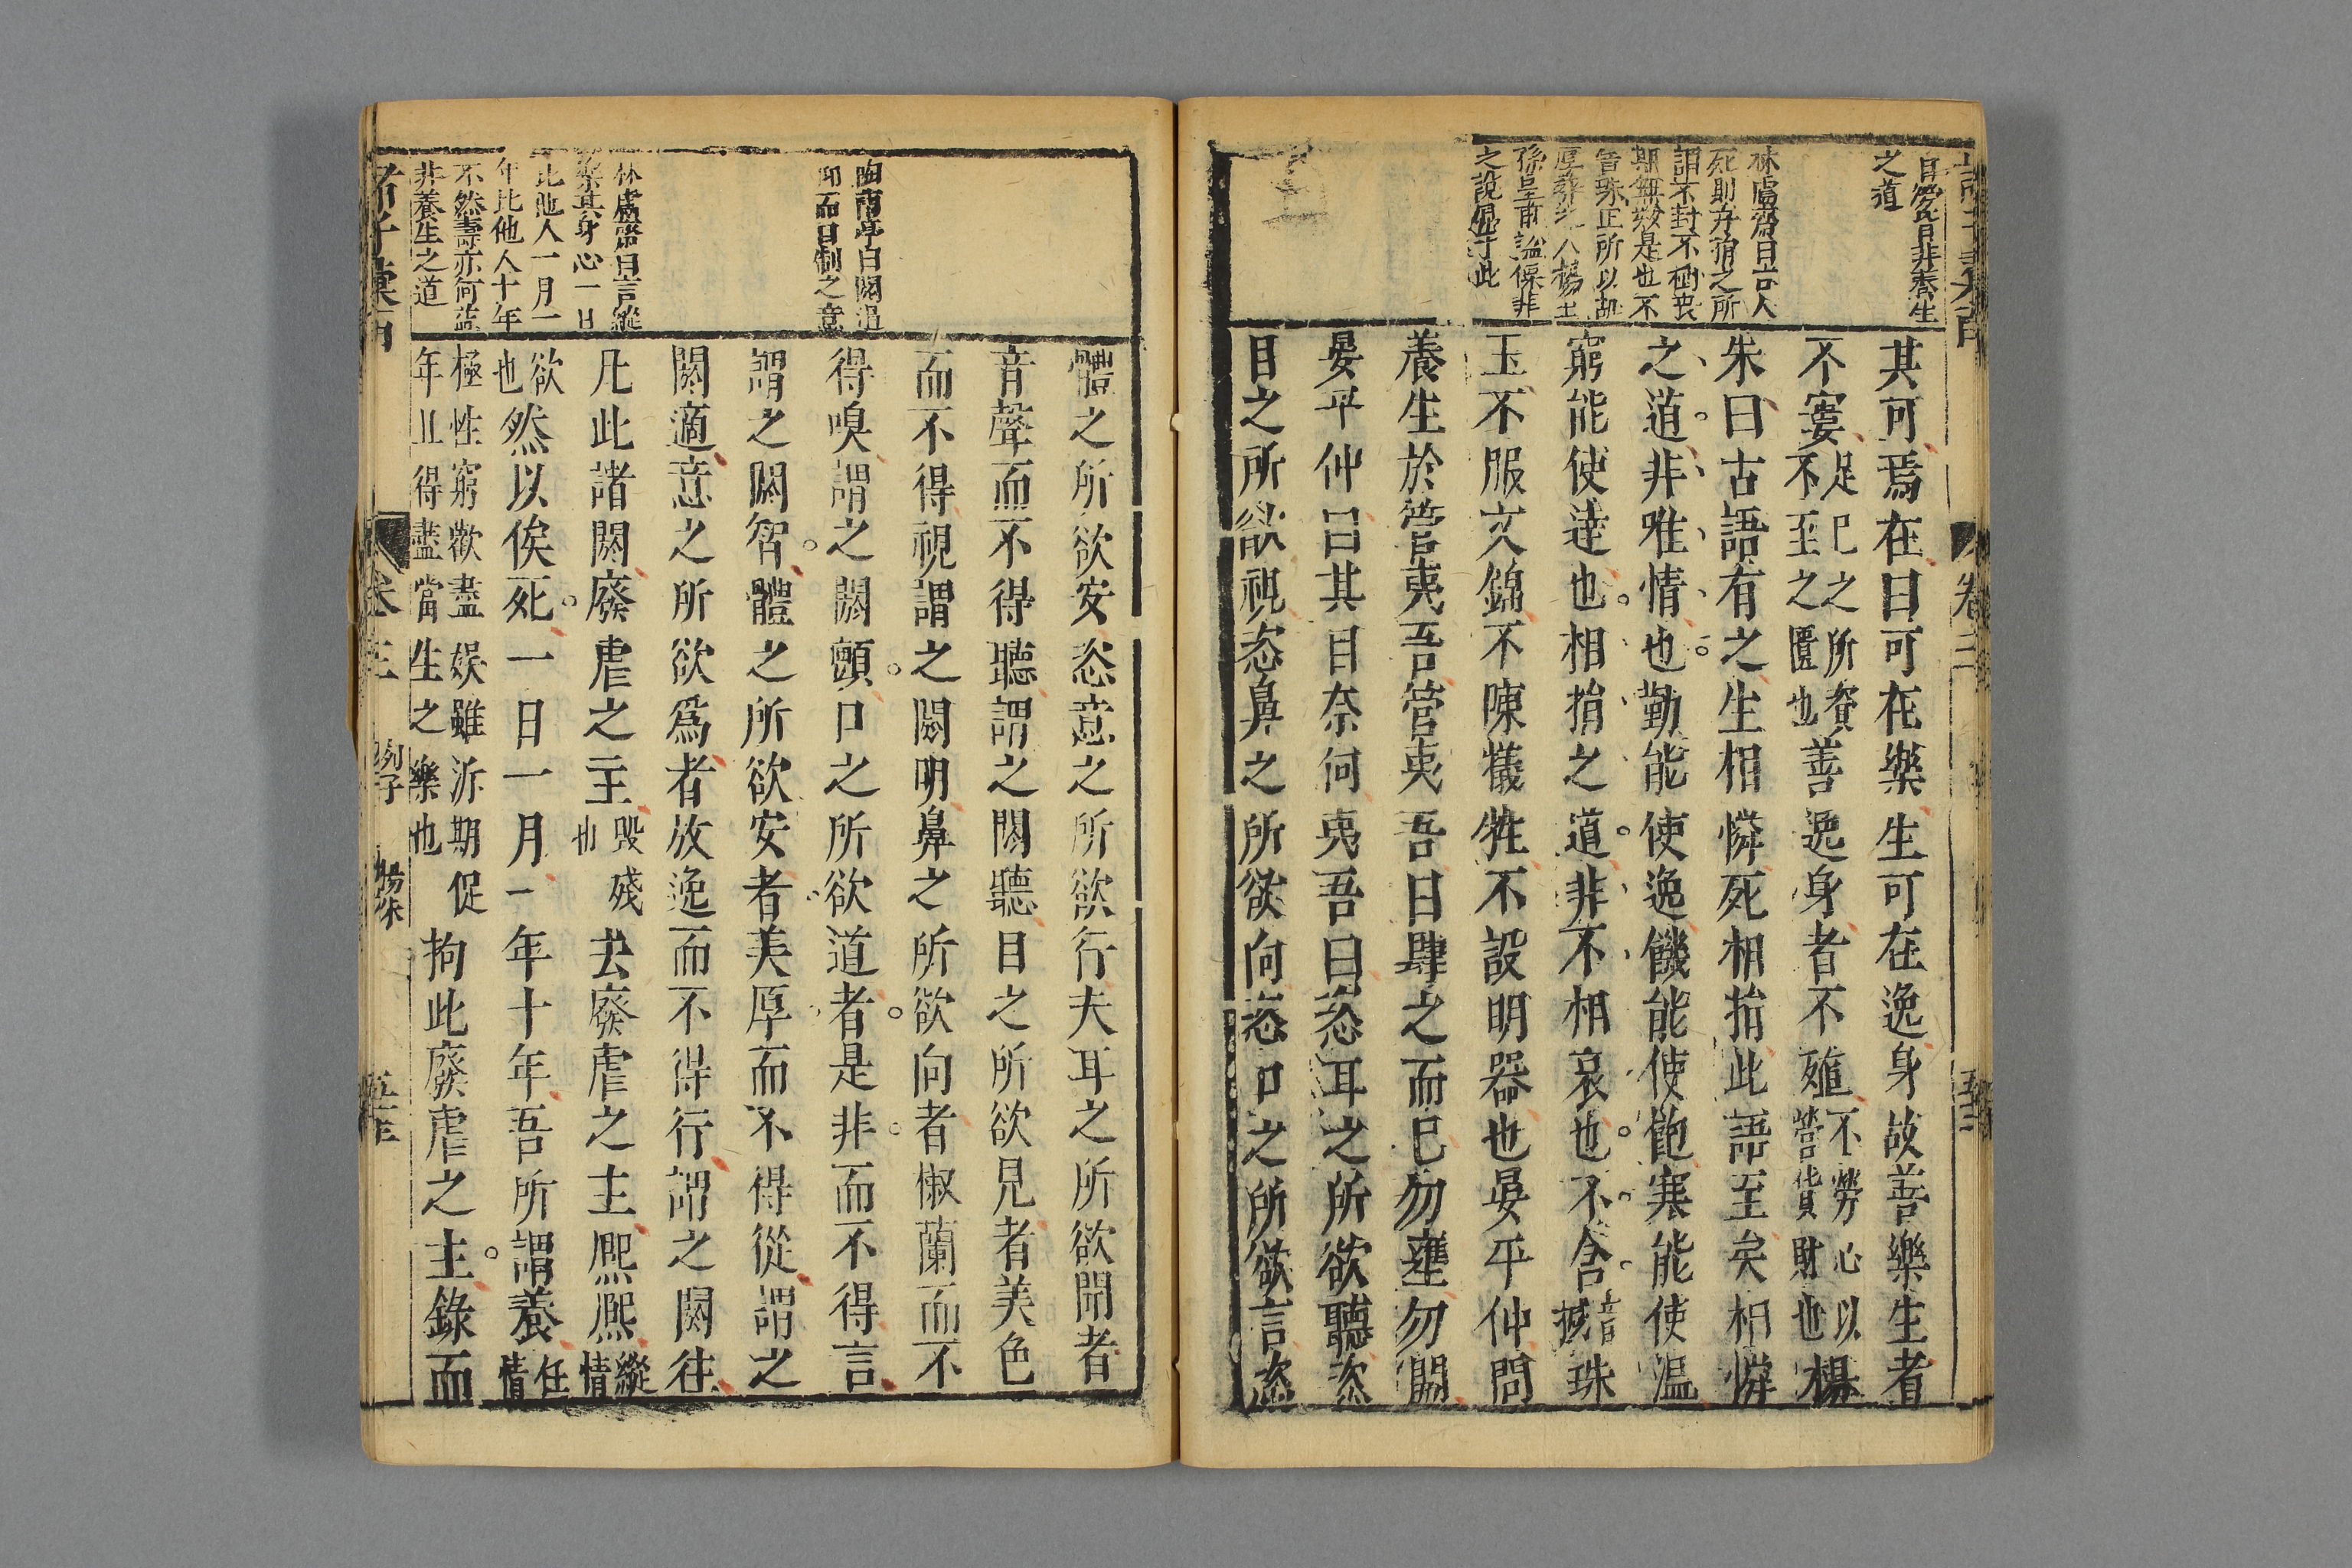 其可焉在曰可在樂生可在逸身故善樂生者
不窶足已之所資不至之匱也善逸身者不殖不勞心以營貨財也楊
朱曰古語有之生相憐死相捐此語至矣相憐
之道非唯情也勤能使逸饑能使飽寒能使溫
窮能使達也相捐之道非不相哀也不含音撼珠
玉不服文錦不陳犧牲不設明器也晏平仲問
養生於管夷吾管夷吾曰肆之而已勿壅勿閼
晏平仲曰其目奈何夷吾曰恣耳之所欲聽恣
目之所欲視恣鼻之所欲向恣口之所欲言恣
之道
林鬳齋曰言人
死則弃捐之所
謂不封不樹喪
期無數是也不
含珠正所以誚
厚葬之人楊王
孫皇甫謐倮非
之說倡于此
體之所欲安恣意之所欲行夫耳之所欲聞者
音聲而不得聽謂之閼聰目之所欲見者美色
而不得視謂之閼明鼻之所欲向者椒蘭而不
得嗅謂之閼顫口之所欲道者是非而不得言
謂之閼智體之所欲安者美厚而不得從謂之
閼適意之所欲爲者放逸而不得行謂之閼往
凡此諸閼廢虐之主毀殘也去廢虐之主熈熈縱情
欲也然以俟死一日一月一年十年吾所謂養任情
極性窮歡盡娛雖沂期促年且得盡當生之樂也拘此廢虐之主錄而
卽而日制之意
林鬳齋曰言縱
樂其身心一日
比他人一月一
年比他人十年
不然壽亦何益
非養生之道
卷三
列子
楊朱